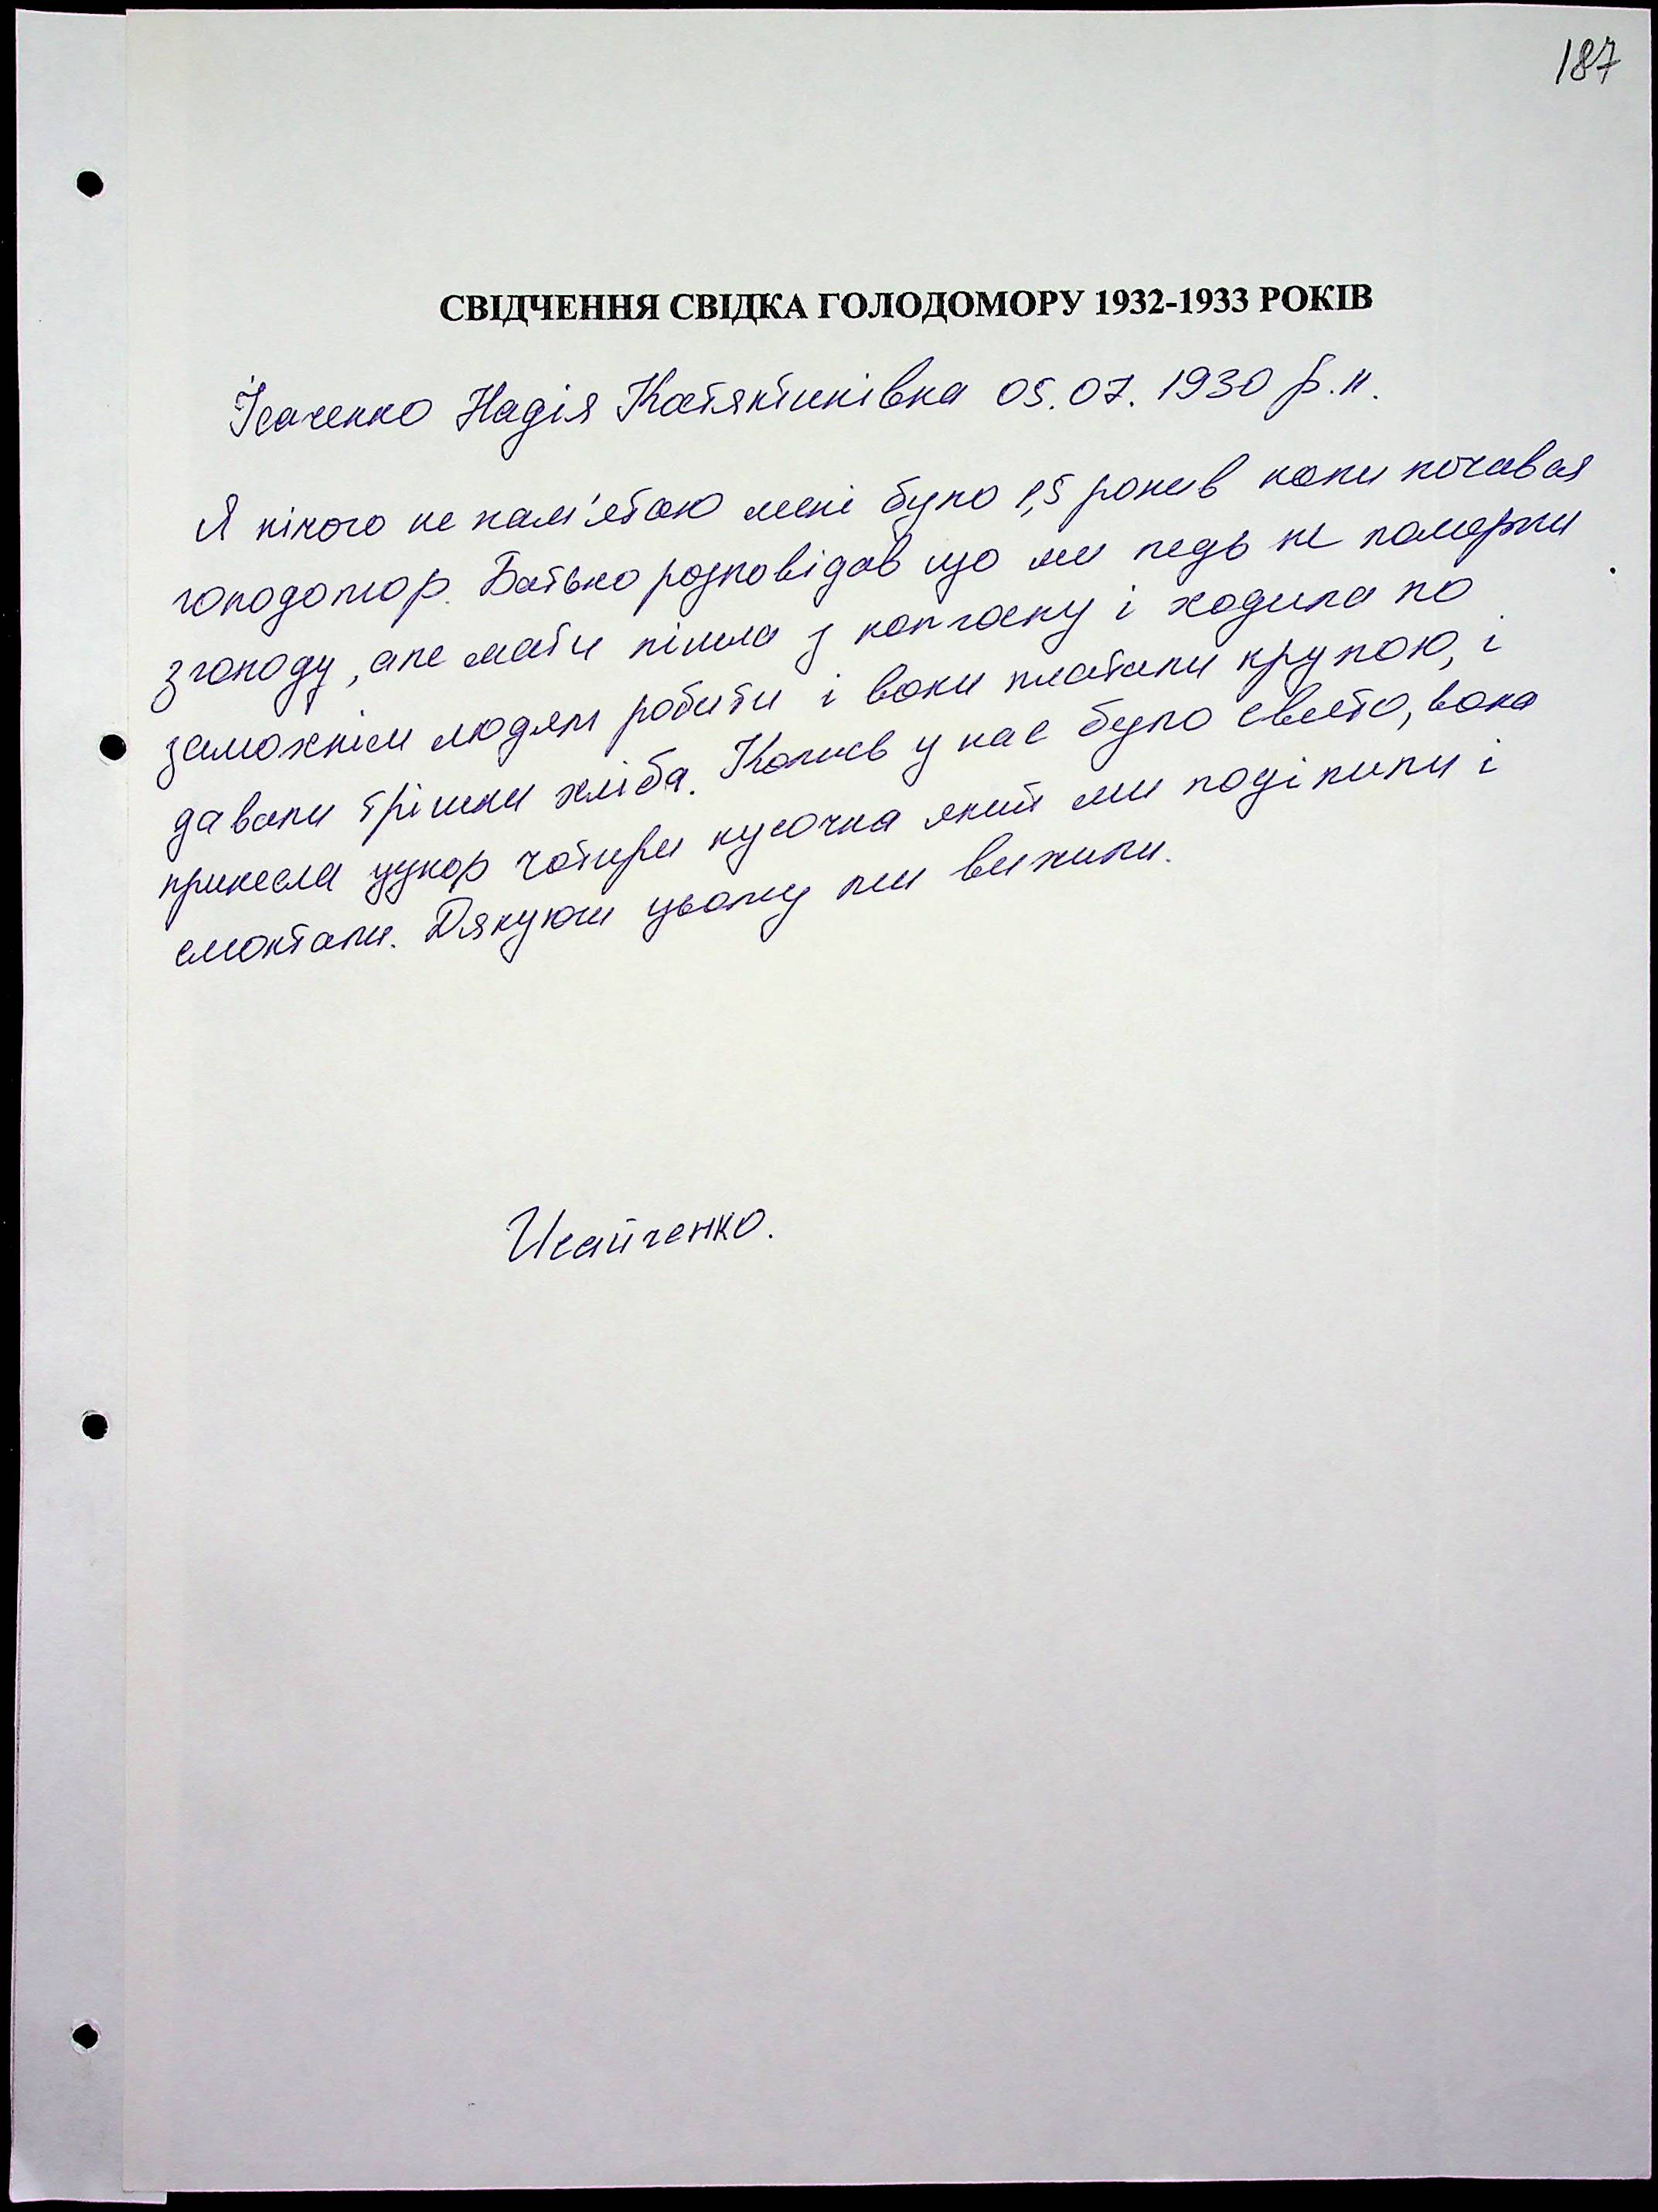 187
СВІДЧЕННЯ СВІДКА ГОЛОДОМОРУ 1932-1933 РОКІВ
Ісаченко Надія Катянтинівна 05.07.1930 р.н.
Я нічого не пам'ятаю мені було 1,5 роки в коли почався
голодомор. Батько розповідав що ми ледь не померли
з голоду, але мати пішла з колгоспу і ходила по
заможнім людям робити і вони платили крупою, і
давали трішки хліба. Колись у нас було свято, вона
принесла цукор чотири кусочка який ми поділили і
смоктали. Дякуючи цьому ми вижили.
Исайченко.